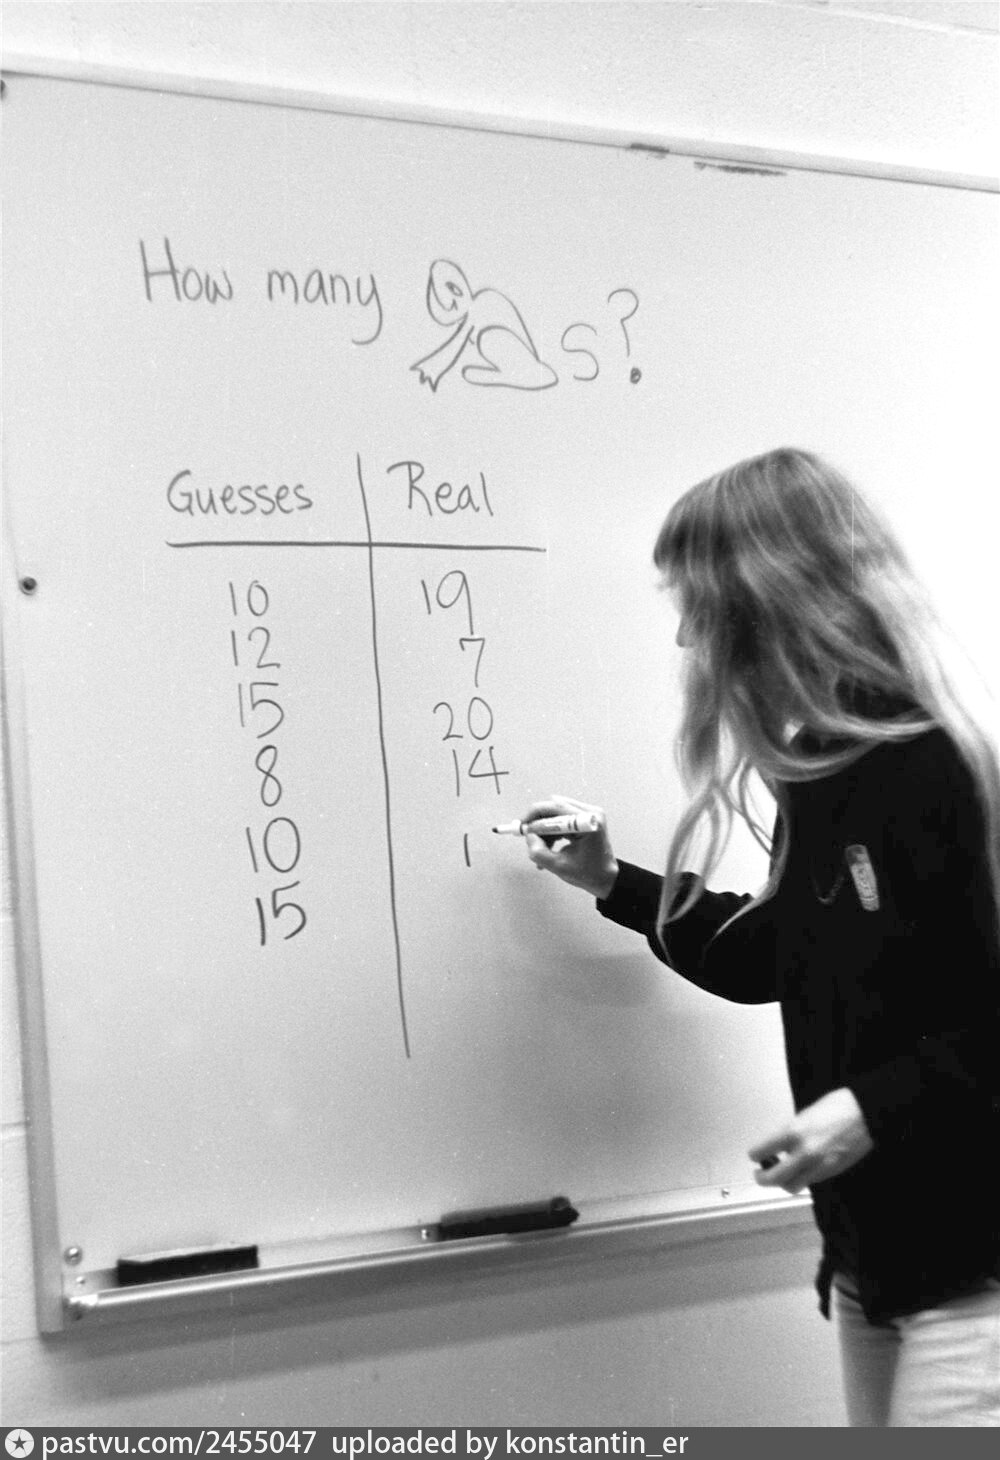 How many s?
Guesses Real
10 19
12 7
15 20
8 14
10 1
15
pastvu.com/2455047 uploaded by konstantin_er